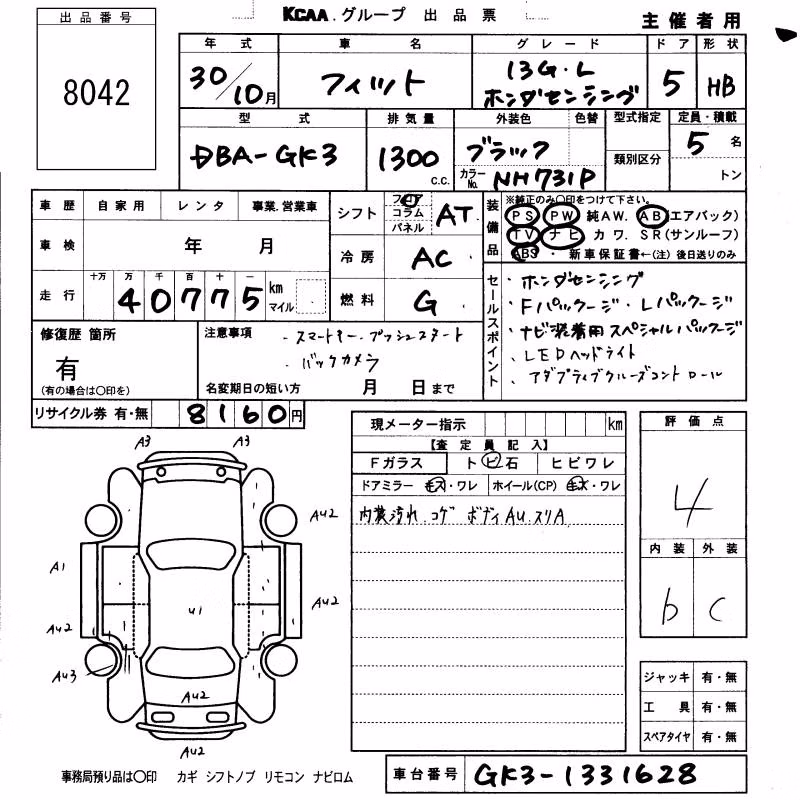 KCAA.グループ 出品票
主催者用
出品番号
8042
年式 車名 グレード ドア 形状
30/10月 フィット 13G・L ホンダセンシング 5 HB
型式 排気量 外装色 色替 型式指定 定員・積載
類別区分
DBA-GK3 1300 c.c. ブラック 5名
カラーNo. NH731P トン
車歴 自家用 レンタ 事業.営業車
車検 年 月
走行 十万 万 千 百 十 一
40775 km マイル
シフト フロア コラム パネル AT
冷房 AC
燃料 G
装備品 ※純正のみ〇印をつけて下さい。
PS PW 純AW. AB(エアバック)
TV ナビ カワ. SR(サンルーフ)
ABS ・ 新車保証書←(注) 後日送りのみ
セールスポイント
・ホンダセンシング
・Fパッケージ・Lパッケージ
・ナビ装着用スペシャルパッケージ
・LEDヘッドライト
・アダプティブクルーズコントロール
修復歴 箇所
有
(有の場合は〇印を)
注意事項
・スマートキー・プッシュスタート
・バックカメラ
名変期日の短い方 月 日まで
リサイクル券 有・無 8160円
現メーター指示 km
【査定員記入】
Fガラス トビ石 ヒビワレ
ドアミラー キズ・ワレ ホイール(CP) キズ・ワレ
内装汚れ.コゲ ボディAU.スリA
評価点
4
内装 外装
b c
A3 A3
AU2
A1
U1
AU2
AU2
AU3
AU2
AU2
ジャッキ 有・無
工具 有・無
スペアタイヤ 有・無
事務局預り品は〇印 カギ シフトノブ リモコン ナビロム
車台番号 GK3-1331628